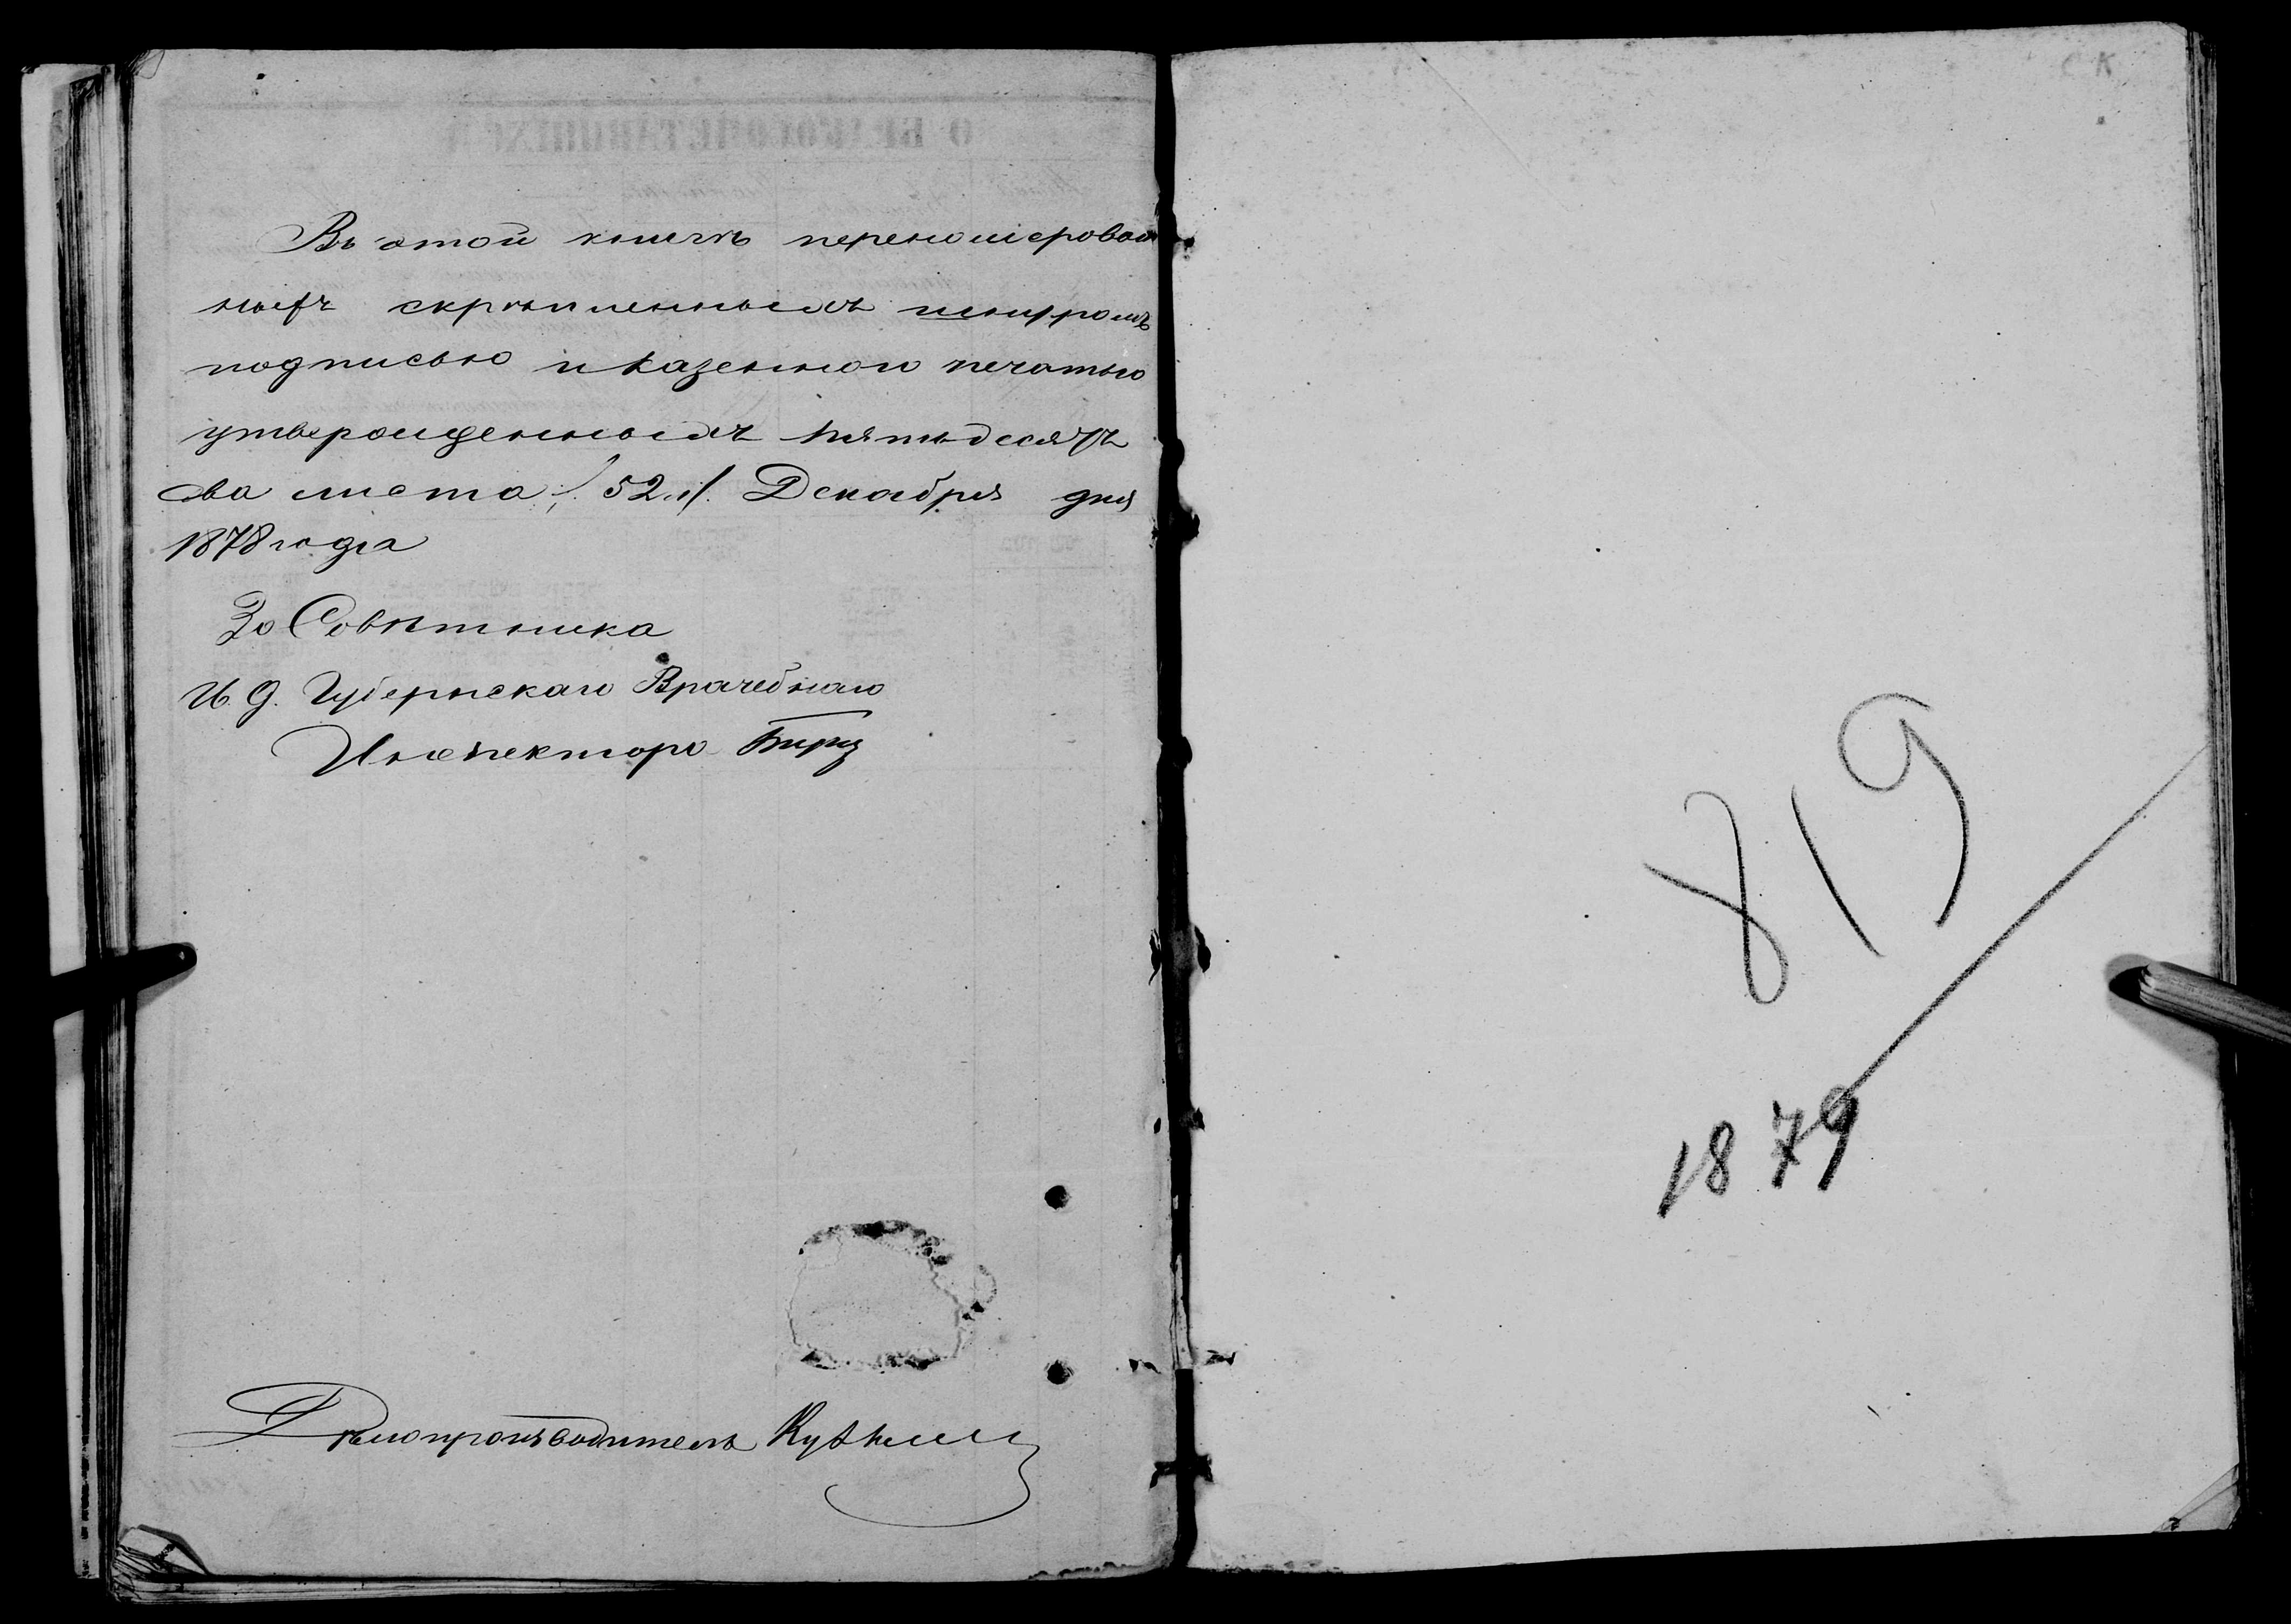 Въ этой книгѣ перенумерован
ныхъ скрѣпленныхъ шнуромъ
подписью и казенною печатью
утвержденныхъ пятьдесятъ
два листа /52 л/. Декабря дня
1878 года
За Совѣтника
И. д. Губернскаго Врачебнаго
Инспектора
Дѣлопроизводитель
819
1879
С К